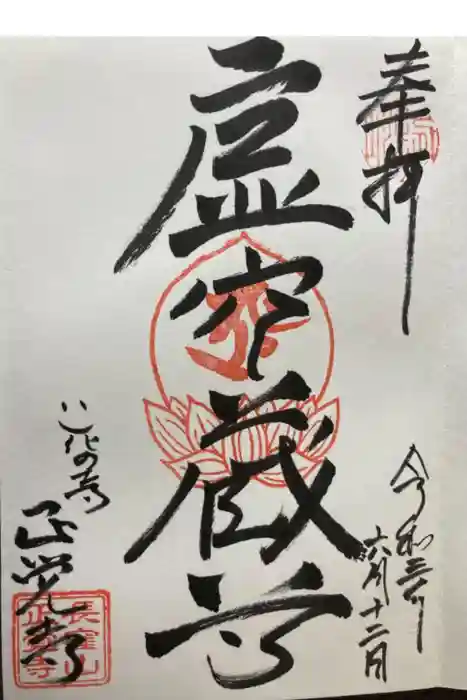 奉拝
虚空蔵尊
令和三年
六月十二日
花の寺
正覚寺
長窪山
正覚寺